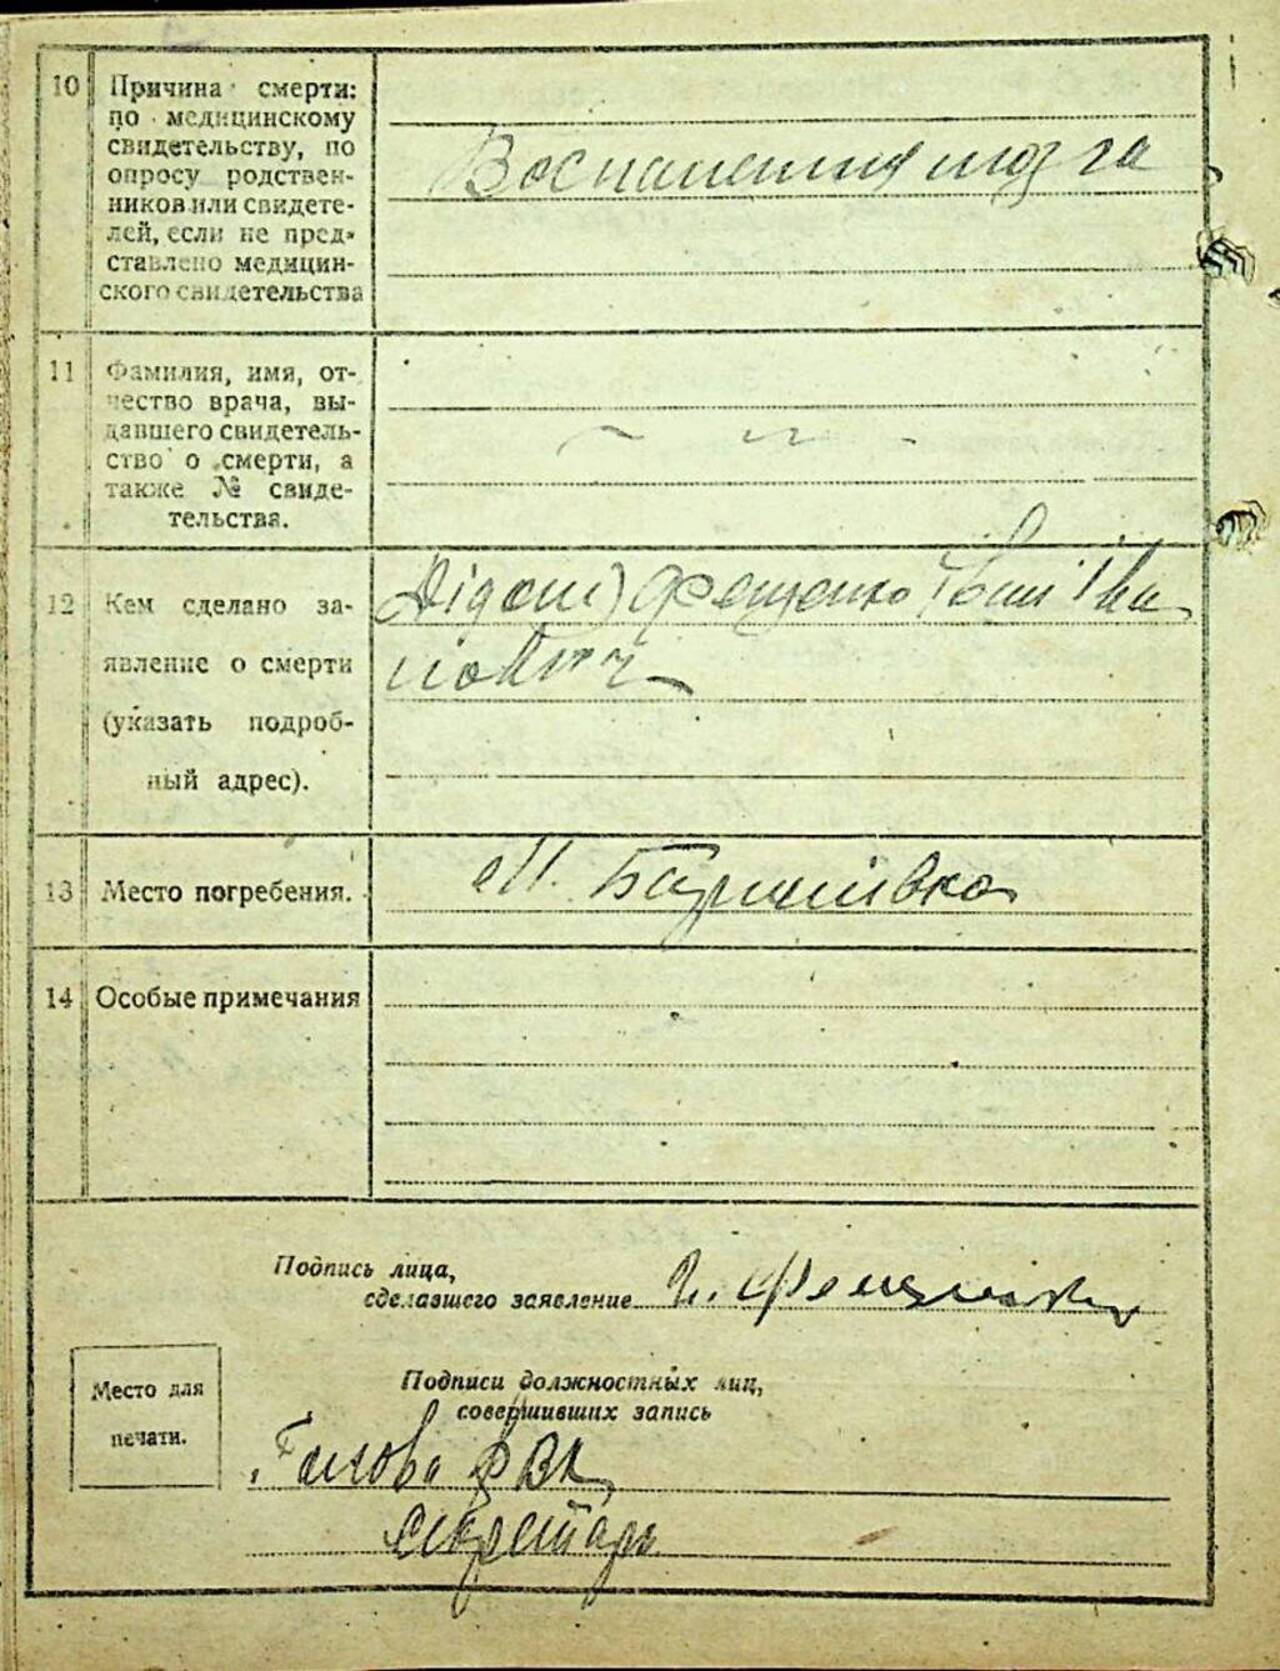 10 Причина смерти:
по медицинскому
свидетельству, по
опросу родствен-
ников или свидете-
лей, если не пред-
ставлено медицин-
ского свидетельства
Воспаления мозга
11 Фамилия, имя, от-
чество врача, вы-
давшего свидетель-
ство о смерти, а
также № свиде-
тельства.
12 Кем сделано за-
явление о смерти
(указать подроб-
ный адрес).
Дідом) Фещенко Іван Іва
нович
13 Место погребения.
м. Баришівка
14 Особые примечания
Подпись лица,
сделавшего заявление И. Фещенко
Подписи должностных лиц,
совершивших запись
Место для
печати.
Голова
секретарь